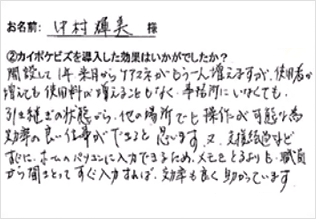 お名前: 中村輝美 様
②カイポケビズを導入した効果はいかがでしたか?
開設して1年 来月からケアマネがもう一人増えますが、使用者が
増えても使用料が増えることもなく、事務所にいなくても、
引き継ぎの状態から、他の場所でも操作が可能な為
効率の良い仕事ができると思います。又、支援経過など
すぐに、ホームのパソコンに入力できるため、メモをとるよりも、職員
から聞きとってすぐ入力すれば、効率も良く助かっています。